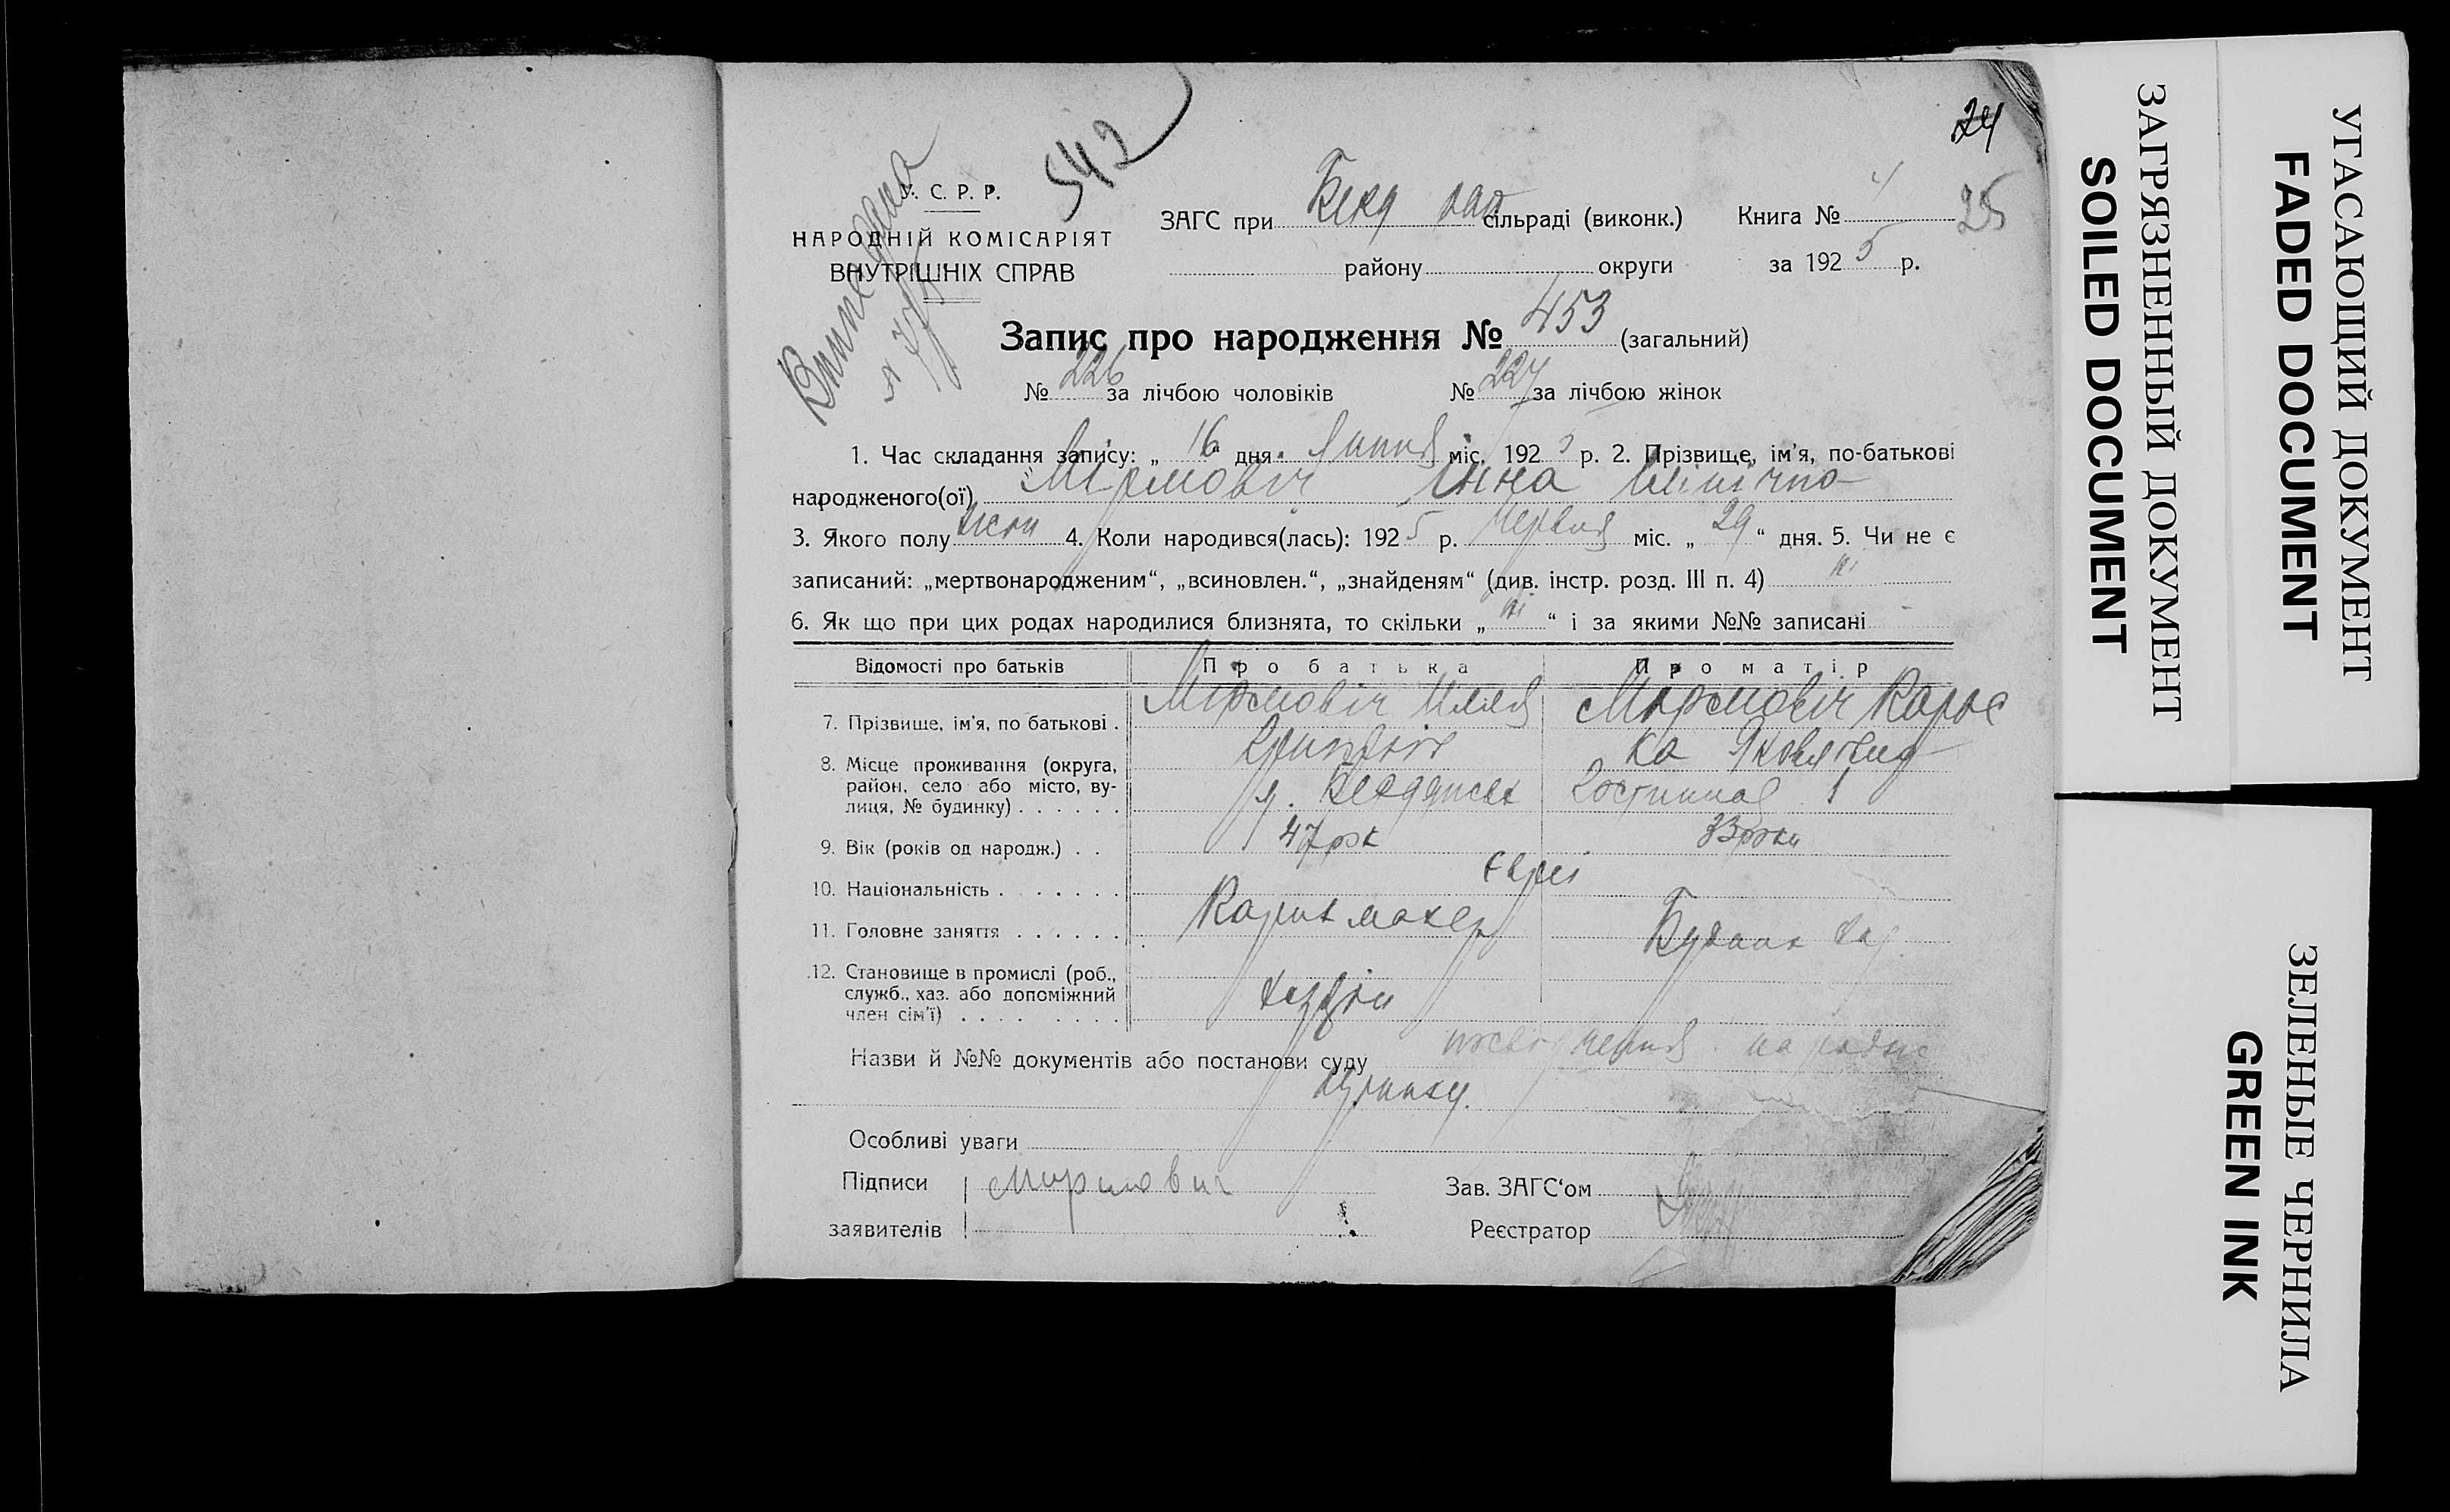 24
25
542
У. С. Р. Р.
НАРОДНІЙ КОМІСАРІЯТ
ВНУТРІШНІХ СПРАВ
ЗАГС при сільраді (виконк.) Книга №
району округи за 1925 р.
Запис про народження № 453 (загальний)
№ 226 за лічбою чоловіків № 227 за лічбою жінок
1. Час складання запису: „16“ дня Липня міс. 1925 р. 2. Прізвище, ім'я, по-батькові
народженого(ої) Мірмовіч Інна Ілінічна
3. Якого полу жон 4. Коли народився(лась): 1925 р. Червня міс. „29“ дня. 5. Чи не є
записаний: „мертвонародженим“, „всиновлен.“, „знайденям“ (див. інстр. розд. III п. 4) ні
6. Як що при цих родах народилися близнята, то скільки „ні“ і за якими №№ записані
Відомості про батьків Про батька Про матір
7. Прізвище, ім'я, по батькові . Мірмовіч Ілля Мірмовіч
ка Яковлевна
8. Місце проживання (округа,
район, село або місто, ву-
лиця, № будинку) . . . . . . 1
9. Вік (років од народж.) . . 47 рок 33 роки
10. Національність . . . . . . . Євреі
11. Головне заняття . . . . . .
12. Становище в промислі (роб.,
служб., хаз. або допоміжний
член сім'ї) . . . . . . . .
Назви й №№ документів або постанови суду
будинку.
Особливі уваги
Підписи Мирмович Зав. ЗАГС'ом
заявителів Реєстратор
ЗАГРЯЗНЕННЫЙ ДОКУМЕНТ
SOILED DOCUMENT
УГАСАЮЩИЙ ДОКУМЕНТ
FADED DOCUMENT
ЗЕЛЕНЫЕ ЧЕРНИЛА
GREEN INK